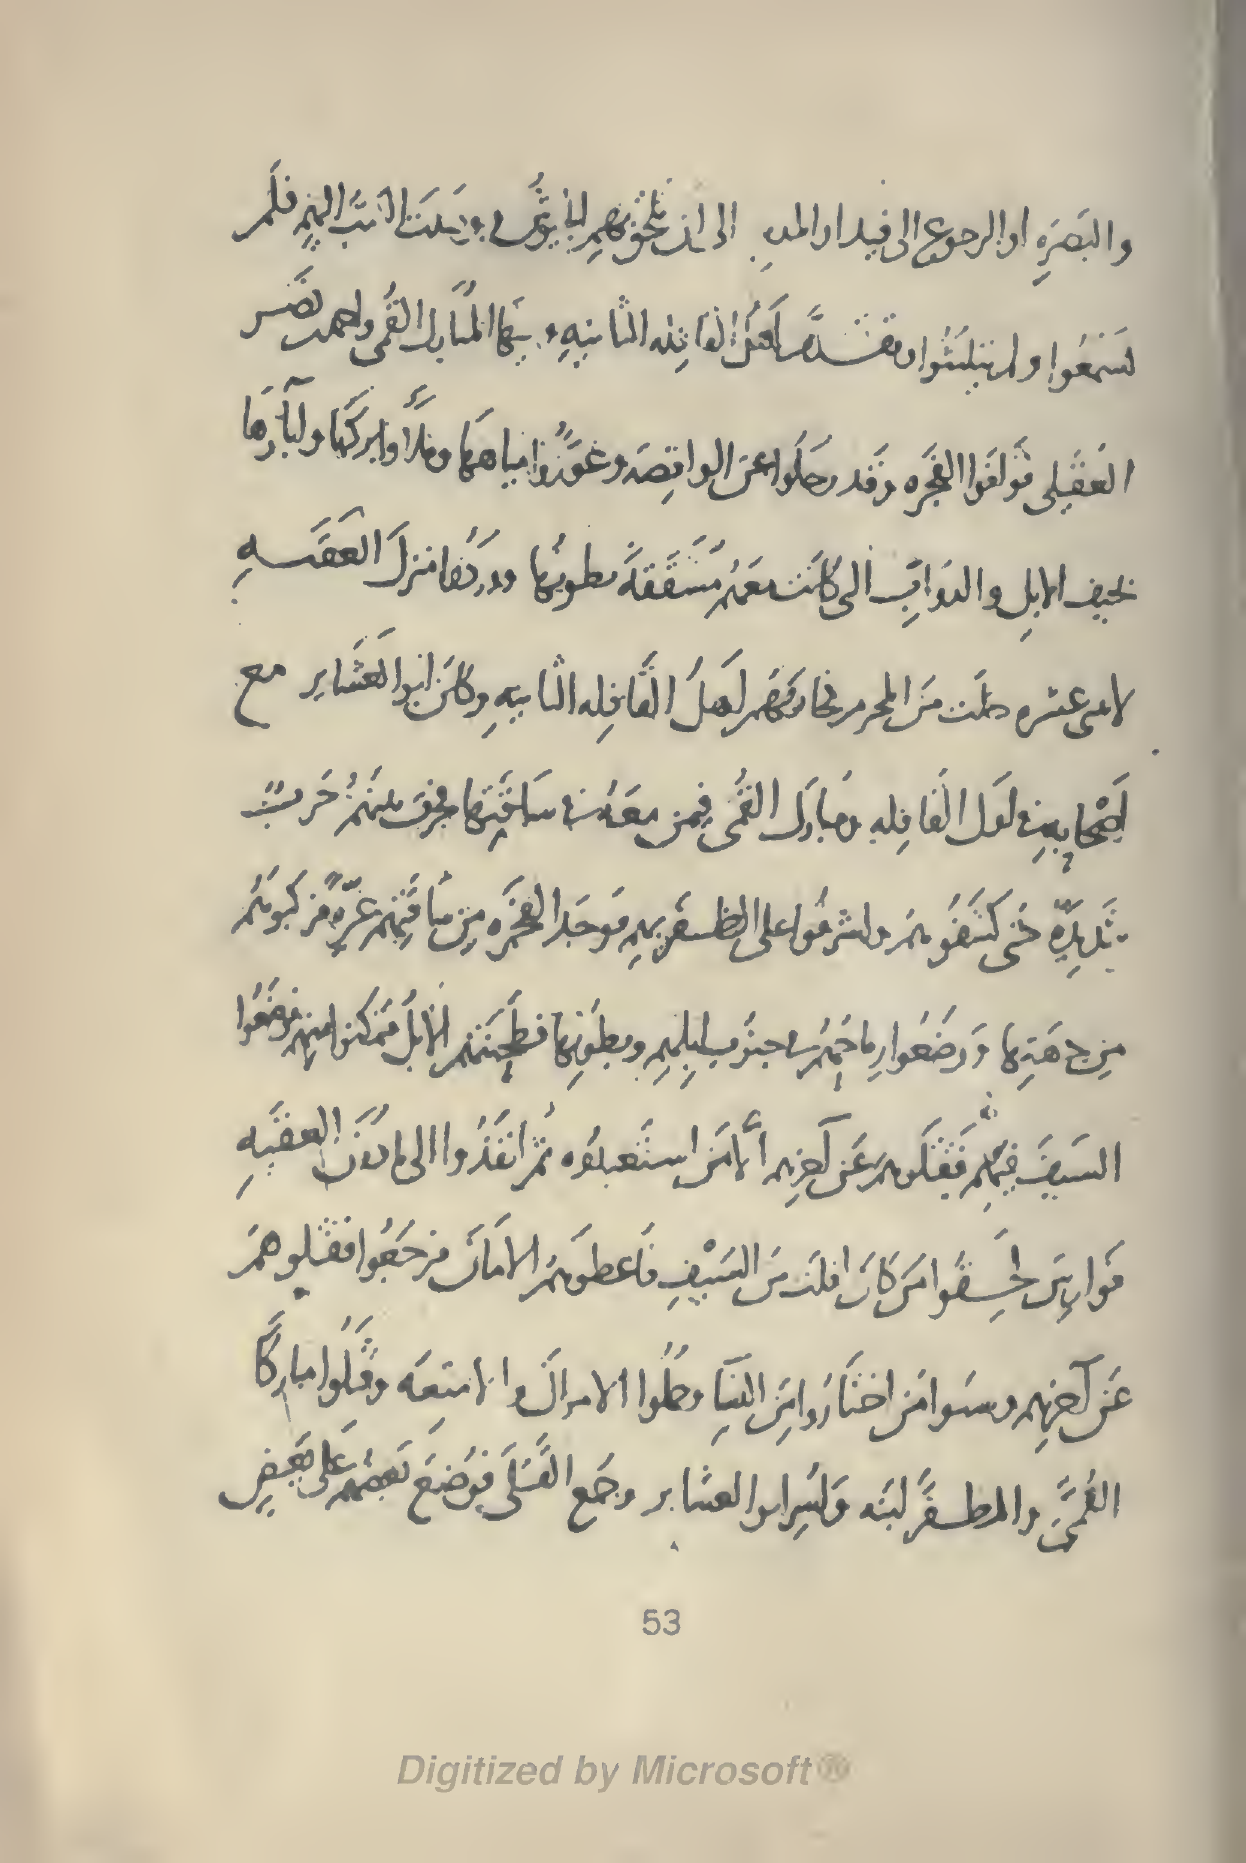 والبَصَرَهِ او الرجوع الى فيد او المدينه الى ان تلحق بهم الجيوش ووصلت الكتب اليهم فلم
يَسمَعُوا ولم يتلبثوا وتقدَّم اَهلُ القافله الثانيهِ وفيها المُبارك القُمى واحمد بن نصر
العُقَيلى فوافَوا الفَجَره وقَد رحَلوا عن الواقِصَه وعَوَّرُوا مياهها ومَلأوا بركَها وابآرَها
بجيف الابِل والدوَابّ التى كانت معهُم مُشَقَّقةً بطونُها ووردُوا منزلَ العَقَبه
لاثنى عشره خلَت منَ المحرم فحاربَهُم اَهلُ القافله الثانيهِ وكانَ ابوا العَشاير مع
اَصْحابِهِ فى اَوّل القافِلهِ ومُبارَك القُمى فيمن معَهُ فى ساقَتِها فجرت بينَهُم حَربٌ
شَديدَةٌ حَتى كشَفُوهم واشرفُوا على الظفر بهم فوجَد الفجَره مِن ساقَتِهم غرّةً فركبوهُم
مِن جهَتِها ووضَعُوا رِماحَهُم فى جنُوب اِبِلِهِم وبطُونِها فطَحَنَتهُم الاِبلُ فتمكنوا مِنهم فوضعُوا
السَيفَ فِيهِم فقتَلوهم عَن آخِرهِم الّا مَن استَعبدُوه ثُم انفَذُوا الى مادُونَ العقبَهِ
فوارسَ لحِقُوا مَن كانَ افلتَ منَ السَيْفِ فاَعطوهُم الامَانَ فرَجعُوا فقتَلوهُم
عَن آخِرهِم وسبَوا مَن اختَارُوا مِنَ النسَا وحملُوا الاموال والامتِعَه وقُتِلُوا مباركًا
القُمِّىَ والمظفرَ ابنَه واُسِر ابو العشاير وجَمع القَتلَى فوُضعَ بَعضُهُم عَلى بَعضٍ
53
Digitized by Microsoft®